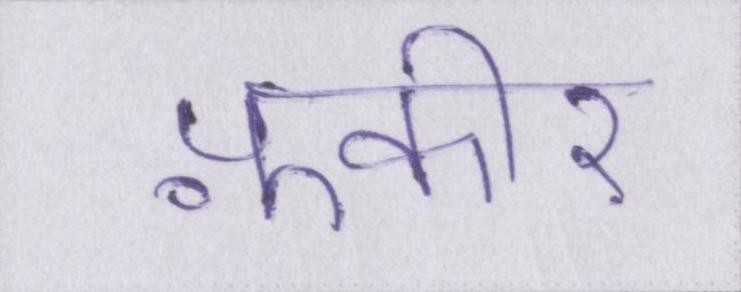 फ़कीर